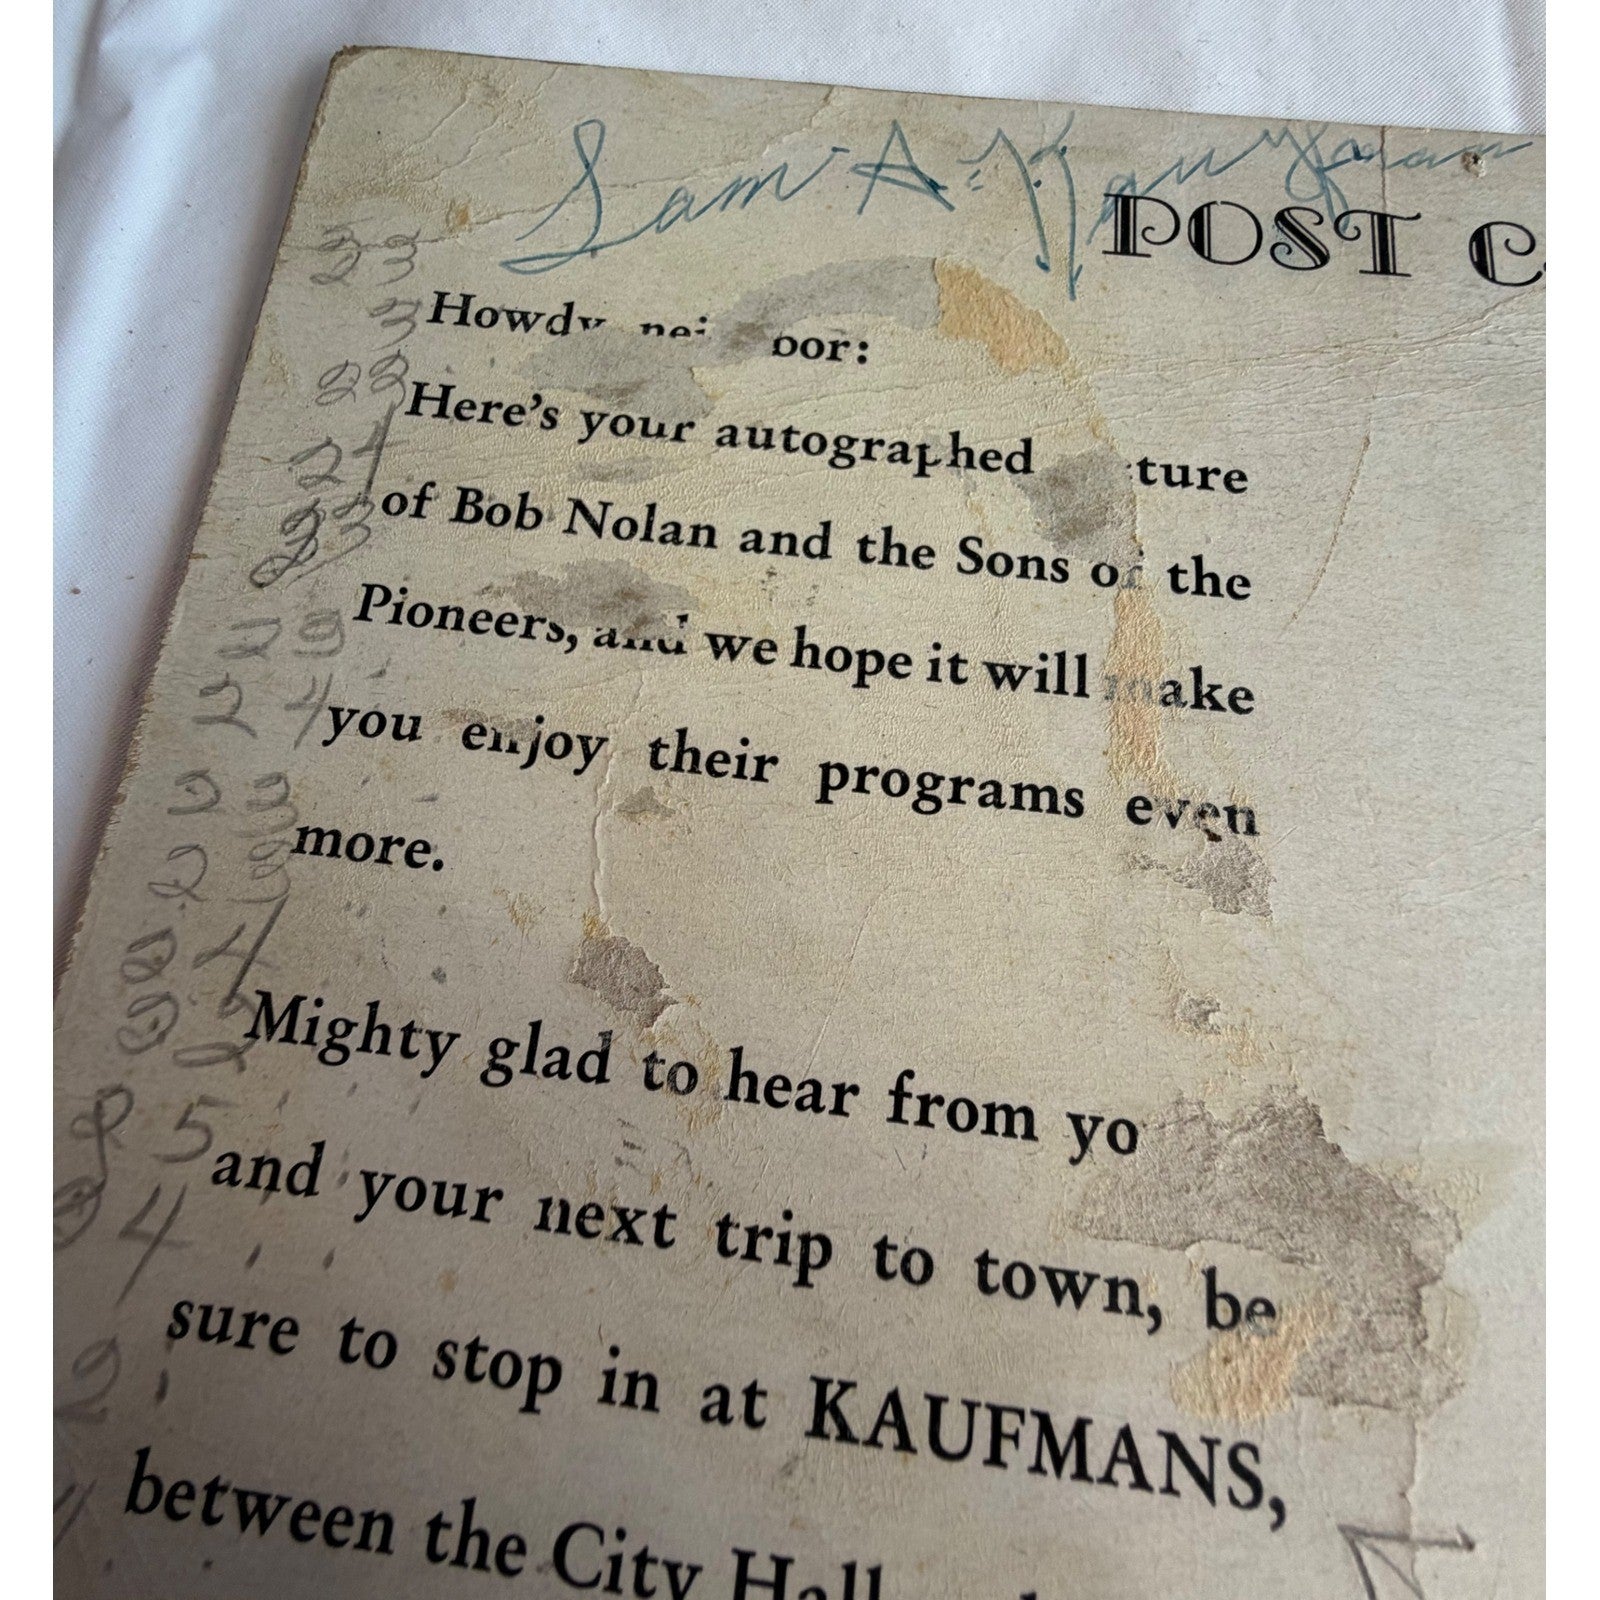 Sam A. Kaufman
POST C
23
Howdy nei bor:
3
23
Here's your autographed ture
24
of Bob Nolan and the Sons of the
23
Pioneers, and we hope it will make
29
24
you enjoy their programs even
23
more.
23
24
Mighty glad to hear from yo
2
25
and your next trip to town, be
24
sure to stop in at KAUFMANS,
2
between the City Hall